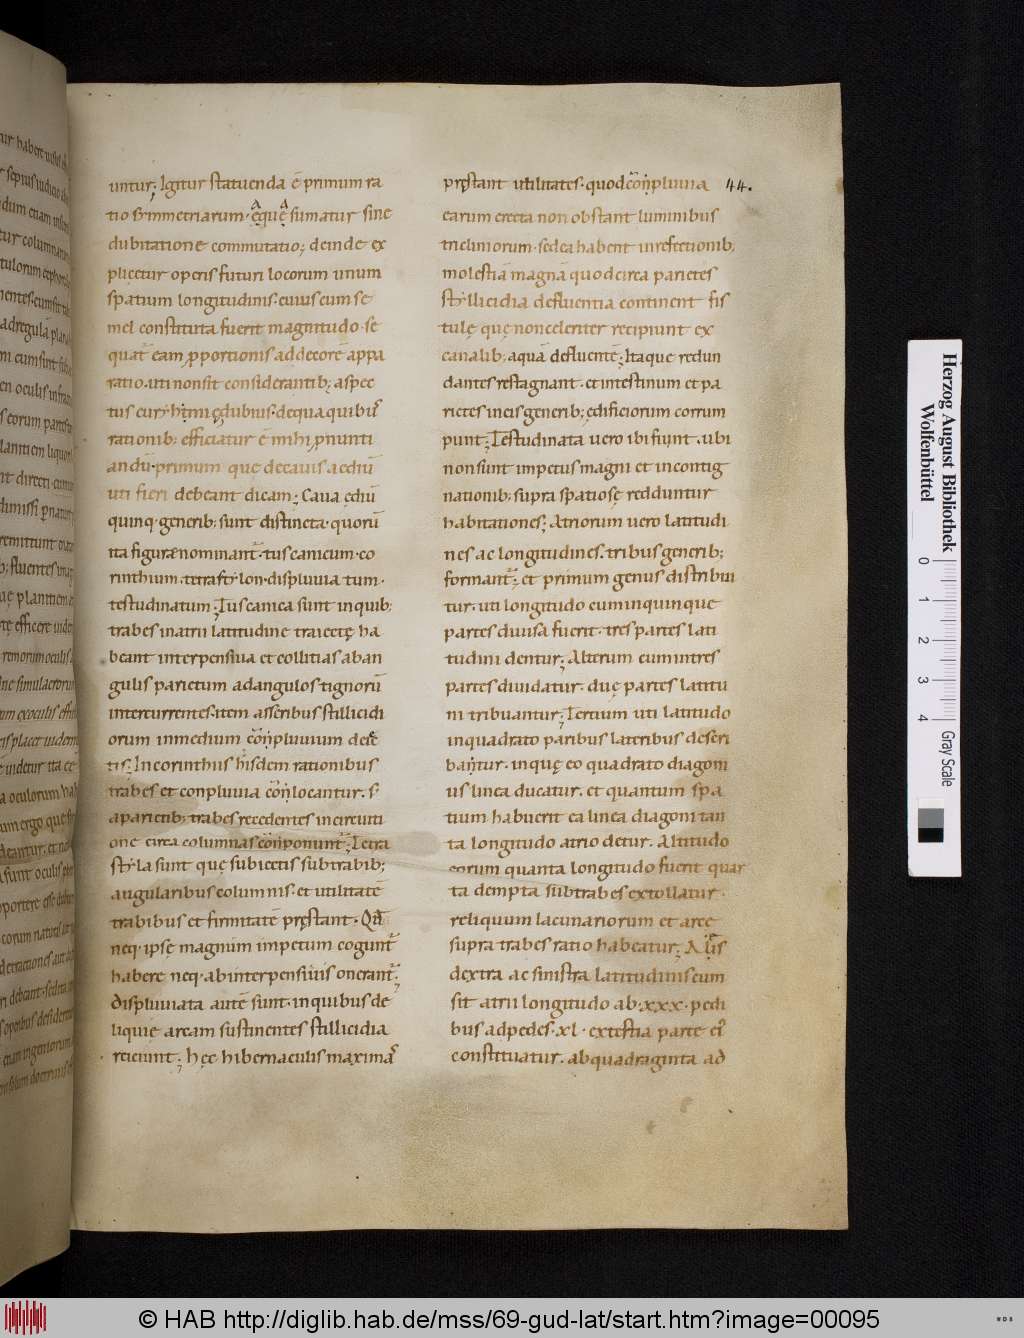 untur; Igitur statuenda ē primum ra
tio symmetriarum· ęquę sumatur sine
dubitatione commutatio; deinde ex
plicetur operis futuri locorum unum
spatium longitudinis· cuius cum se
mel constituta fuerit magnitudo· se
quat᷑ eam ꝓportionis ad decorē appa
ratio· uti non sit considerantib; aspec
tus eury
rationib; efficiatur ē mihi ꝓnunti
andū· primum que de cauis aediū
uti fieri debeant dicam; Caua ędiū
quinq· generib; sunt distincta· quorū
ita figuræ nominant᷑· tuscanicum· co
rinthium tetrastylon· displuuia tum·
testudinatum; Tuscanica sunt in quib;
trabes in atrii latitudine traiectę ha
beant interpensiua et collitias aban
gulis parietum ad angulos tignorū
intercurrentes· item asseribus stillicidi
orum in medium
tis; In corinthiis hisdem rationibus
trabes et conpluuia
a parietib; trabes recedentes in circuiti
one circa columnas Tetra
styla sunt quę subiectis subtrabib;
angularibus columnis· et utilitatē
trabibus et firmitatē pręstant· Qđ
neq· ipsę magnum impetum cogunt᷑
habere neq· ab interpensiuis onerant᷑;
Displuuiata autē sunt· in quibus de
liquię arcam sustinentes stillicidia
reiciunt; hęc hibernaculis maximas
pręstant utilitates· quod conpluuia 44.
earum erecta non obstant luminibus
tricliniorum· sed ea habent in refectionib;
molestiā magnā quod circa parietes
styllicidia defluentia continent fis
tulę quę non celeriter recipiunt ex
canalib; aquā defluentē; Itaque redun
dantes restagnant· et intestinum et pa
rietes in eis generib; ędificiorum corrum
punt; Testudinata uero ibi fiunt· ubi
non sunt impetus magni et in contig
nationib; supra spatiosę redduntur
habitationes; Atriorum uero latitudi
nes ac longitudines tribus generib;
formant᷑; et primum genus distribui
tur· uti longitudo cum in quinque
partes diuisa fuerit· tres partes lati
tudini dentur; Alterum cum in tres
partes diuidatur· duę partes latitu
ni tribuantur; Tertium uti latitudo
in quadrato paribus lateribus descri
bantur· inquę eo quadrato diagoni
us linea ducatur· et quantum spa
tium habuerit ea linea diagoni tan
ta longitudo atrio detur· Altitudo
eorum quanta longitudo fuerit quar
ta dempta sub trabes extollatur·
reliquum lacunariorum et arcę
supra trabes ratio habeatur; Alis
dextra ac sinistra latitudinis cum
sit atrii longitudo ab· xxx· pedi
bus ad pedes· xl· ex testia parte ei᷒
constituatur· ab quadraginta ad
Herzog August Bibliothek
Wolfenbüttel
0 1 2 3 4
Gray Scale
© HAB http://diglib.hab.de/mss/69-gud-lat/start.htm?image=00095